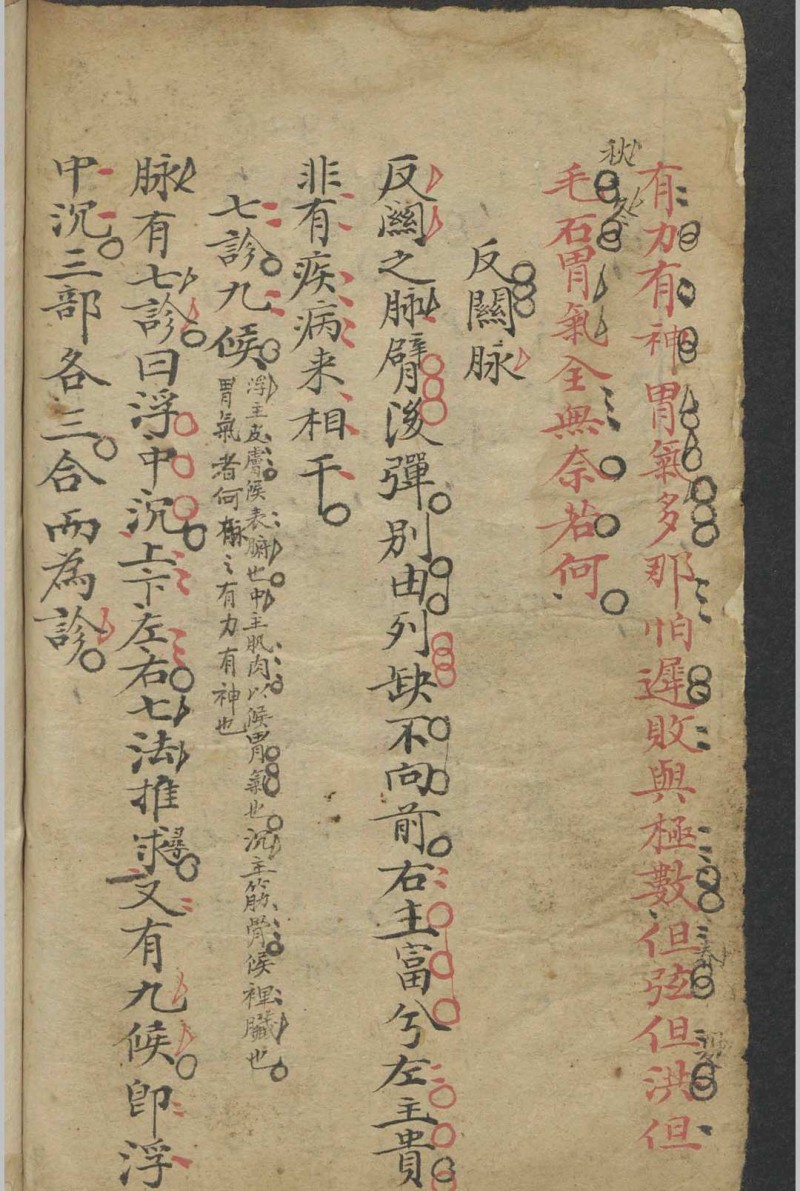 有力有神胃氣多那怕遲敗與極數但弦但洪但
春
夏
毛石胃氣全無奈若何
秋
冬
反關脉
反關之脉臂後彈別由列缺不向前右主富兮左主貴
非有疾病来相干
七診九候
浮主皮膚候表腑也中主肌肉以候胃氣也沉主筋骨候裡臟也
胃氣者何脉〻有力有神也
脉有七診曰浮中沉上下左右七法推求尋又有九候即浮
中沉三部各三合而為診